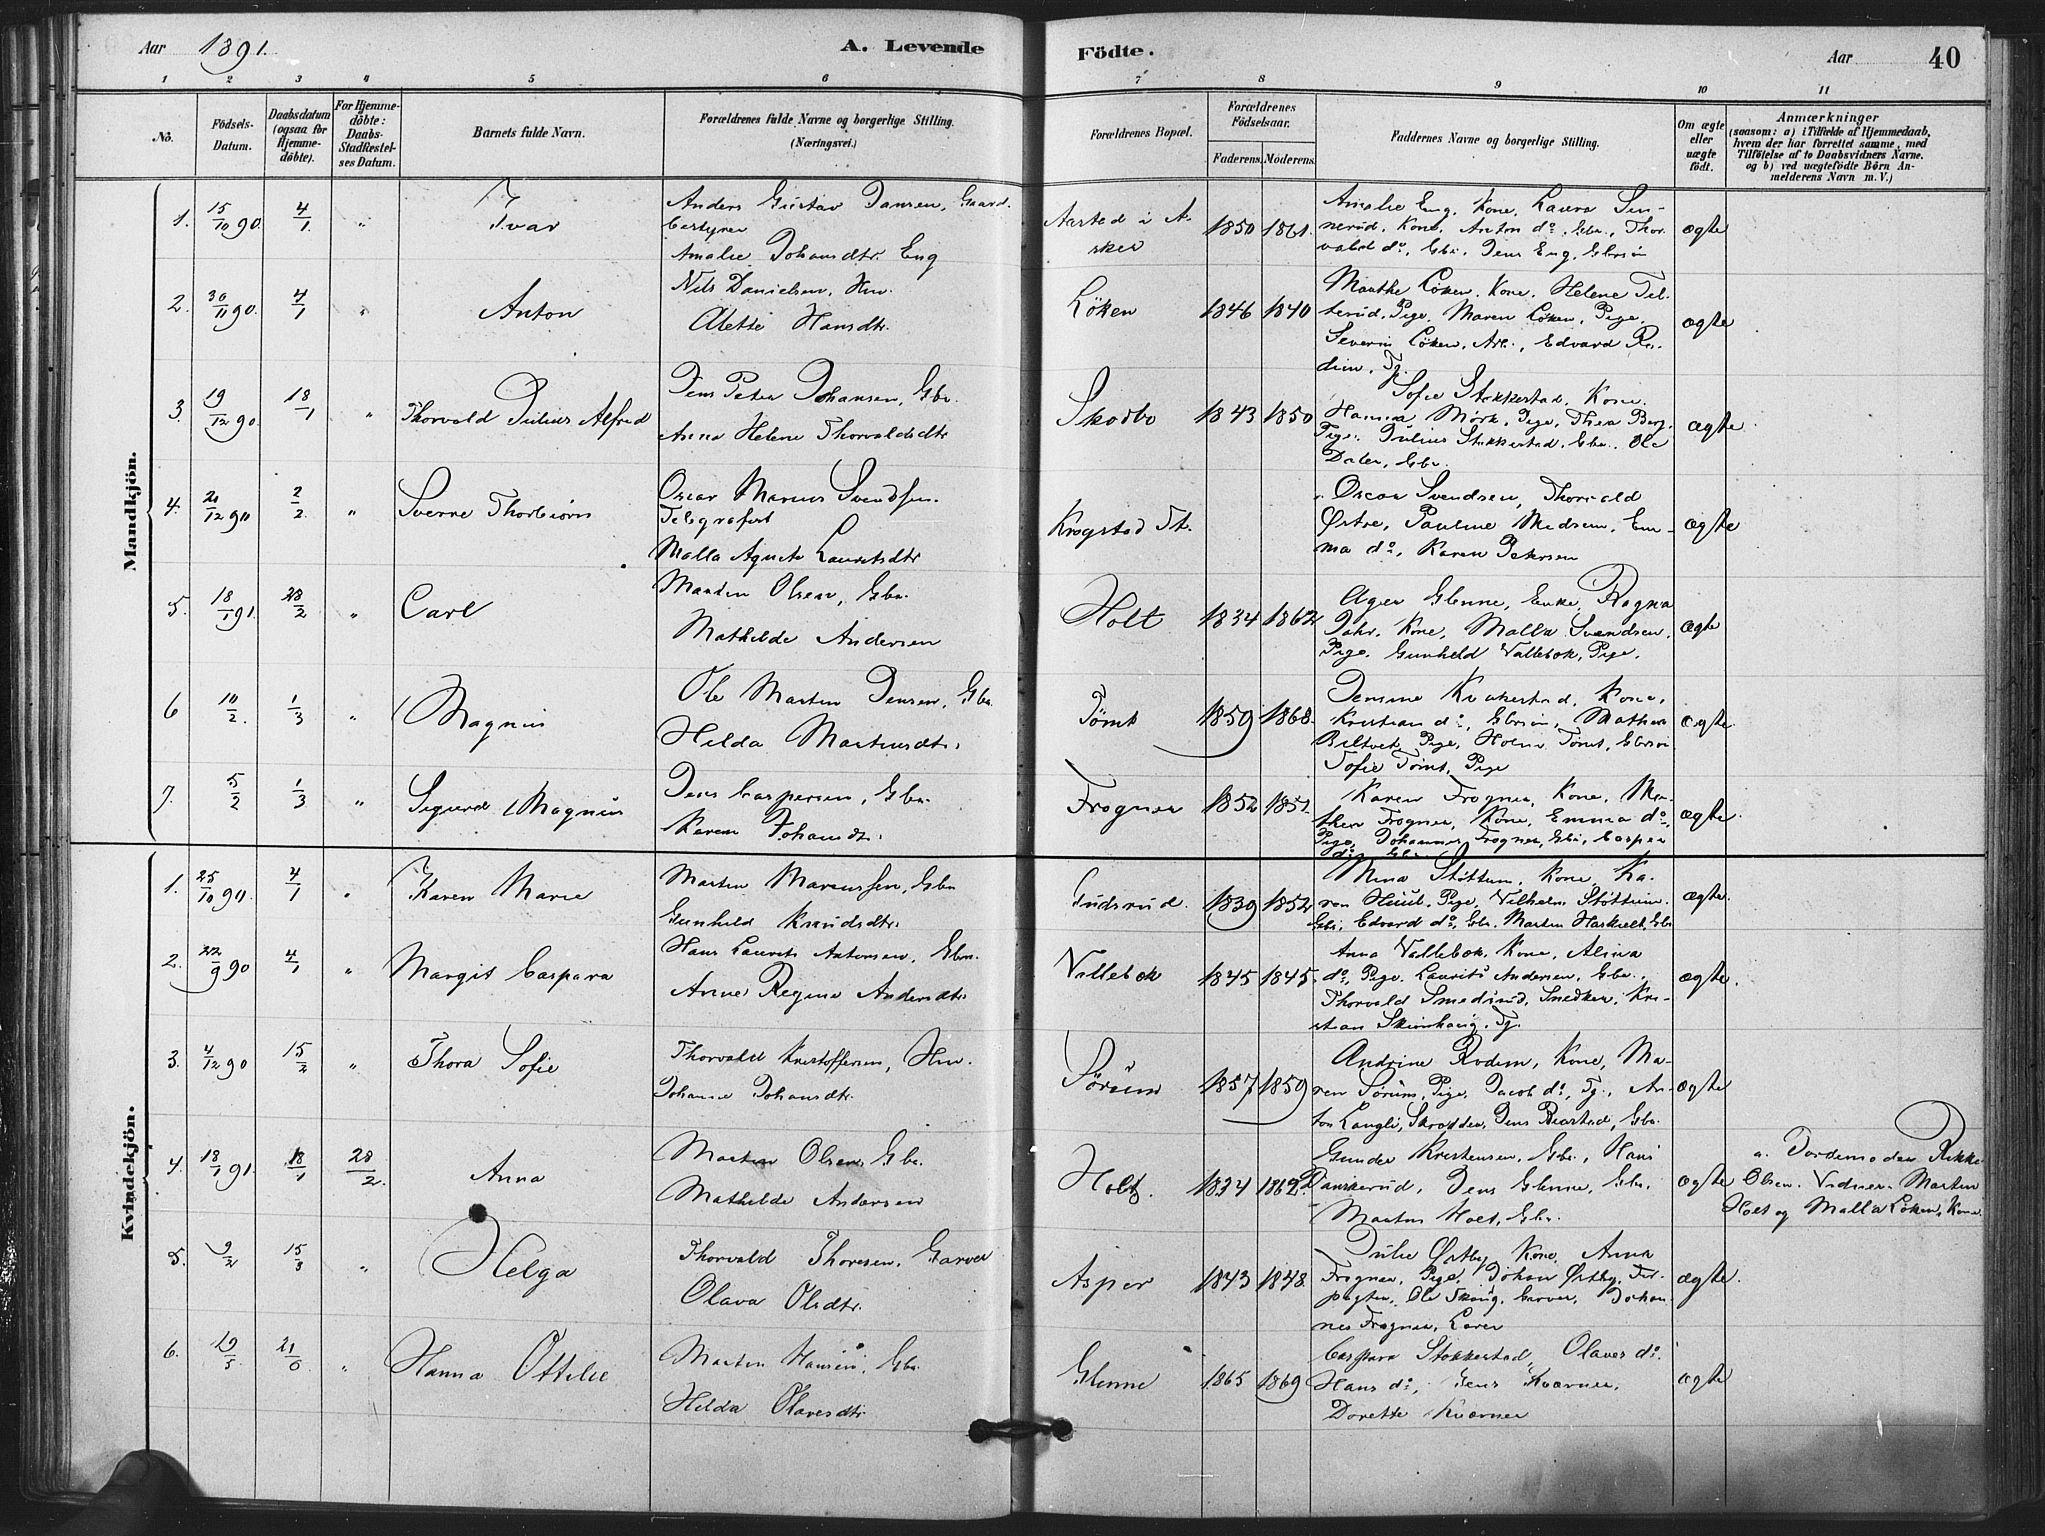 Aar 1891. A. Levende Födte. Aar 40
1 2 3 4 5 6 7 8 9 10 11
No. Födsels-Datum. Daabsdatum (ogsaa for Hjemmedöbte). For Hjemmedöbte: Daabs-Stadfæstelses Datum. Barnets fulde Navn. Forældrenes fulde Navne og borgerlige Stilling. (Næringsvei.) Forældrenes Bopæl. Forældrenes Födselsaar. Faderens. Moderens. Faddernes Navne og borgerlige Stilling. Om ægte eller uægte födt. Anmærkninger (saasom: a) i Tilfælde af Hjemmedaab, hvem der har forrettet samme, med Tilföielse af to Daabsvidners Navne, og b) ved uægtefödte Börn Anmelderens Navn m. V.)
Mandkjön.
1. 15/10 90. 4/1. " Ivar
Anders Gustav Jansen, Gaard-
bestyrer
Amalie Johansdtr. Eng
Aarstad i A-
sker
1850 1861.
Amalie Eng, Kone, Laura Sin-
nerud, Kone, Anton do, Gbr., Thor-
vald do, Gbr., Jens Eng, Gbrsön
ægte
2. 30/11 90. 4/1 " Anton
Nils Danielsen, Hm.
Alette Hansdtr.
Löken 1846 1840
Marthe Löken, Kone, Helene Tel-
terud, Pige, Maren Löken, Pige,
Severin Löken, Arb., Edvard Ro-
dim, Tj.
ægte
3 19/12 90. 18/1 " Thorvald Julius Alfred
Jens Peter Johansen, Gbr.
Anna Helene Thorvaldsdtr
Skodbo 1843 1850
Sofie Stokkestad, Kone.
Hanna Mörk, Pige, Thea Berg,
Pige, Julius Stokkestad, Gbr. Ole
Dalen, Gbr.
ægte.
4. 21/12 90 2/2 " Sverre Thorbiörn
Oscar Marius Svendsen.
Telegrafist
Malla Agnete Lauritsdtr
Krogstad St.
Oscar Svendsen, Thorvald
Østre, Pauline Madsen, Em-
ma do, Karen Petersen
ægte
5. 18/1 91. 28/2 " Carl
Martin Olsen, Gbr.
Mathilde Andersen
Holt 1834 1862
Agen Glenne, Enke, Ragna
Dahr, Kone, Malla Svendsen,
Pige, Gunhild Vallebok, Pige.
ægte
6 10/2. 1/3 " Magnus
Ole Martin Jensen, Gbr.
Hilda Martinsdtr.
Tömt 1859 1868.
Jensine Krakestad, Kone,
Kristian do, Gbrsön, Mathea
Biltvet, Pige, Holm Tömt, Gbrsön
Sofie Tömt, Pige
ægte
7. 5/2 1/3 " Sigurd Magnus
Jens Caspersen, Gbr.
Karen Johansdtr.
Frogner 1852 1851.
Karen Frogner, Kone, Ma-
thea Frogner, Kone, Emma do,
Pige, Johannes Frogner, Gbr, Casper
do, Gbr
ægte.
Kvindekjön.
1. 25/10 90. 4/1 " Karen Marie
Martin Marcussen, Gbr
Gunhild Knudsdtr.
Gudsrud. 1839 1852
Mina Støttum, Kone, Ka-
ren Huul, Pige, Vilhelm Støttum.
Gbr, Edvard do, Gbr. Martin Haskvelt, Gbr
ægte.
2. 22/9 90 4/1 " Margit Caspara
Hans Laurits Antonsen, Gbr.
Anne Regine Andersdtr
Vallebok 1845 1845.
Anna Vallebok, Kone, Alina
do, Pige, Laurits Andersen, Gbr.,
Thorvald Smedsrud, Snedker, Kri-
stian Skionhaug, Tj.
ægte.
3. 4/12 90 15/2 " Thora Sofie
Thorvald Kristoffersen, Hm.
Johanne Johansdtr.
Sörum 1857 1859
Andrine Rodem, Kone, Ma-
ren Sörum, Pige, Jacob do, Tj., An-
ton Langli, Skrædder, Jens Riastad, Gbr.
ægte
4. 18/1 91. 18/1 28/2. Anna
Martin Olsen, Gbr.
Mathilde Andersen
Holt. 1834 1862.
Gunder Kristensen, Gbr., Hans
Danskerud, Jens Glenne, Gbr.
Martin Holt, Gbr.
ægte
a. Jordemoder Rikke
Olsen. Vidner Martin
Holt og Malla Löken, Kone.
5. 9/2 15/3 " Helga
Thorvald Thoresen, Garver
Olava Olsdtr.
Asper 1843 1848.
Julie Østby, Kone, Anna
Frogner, Pige, Johan Østby, For-
pagter, Ole Skaug, Garver, Johan-
nes Frogner, Lærer
ægte.
6. 19/5 21/6 " Hanna Ottilie
Martin Hansen, Gbr.
Hilda Olavesdtr
Glenne 1865 1869
Caspara Stokkestad, Olaves do.
Hans do, Jens Kværner,
Dorette Kværner
ægte